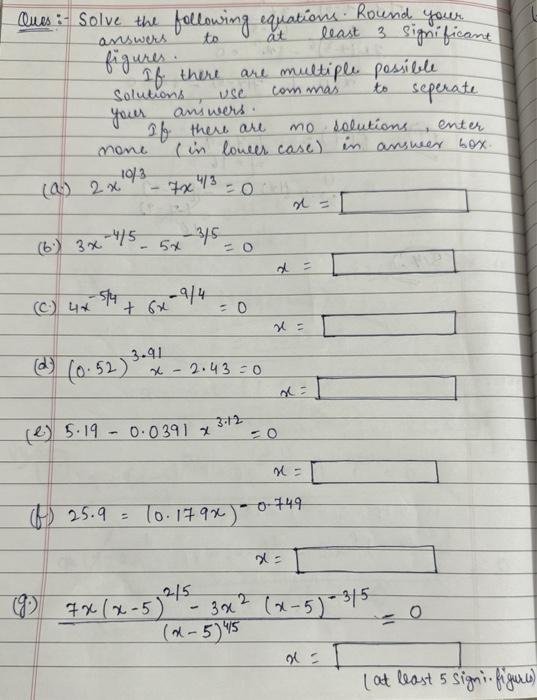 Ques :- Solve the following equations. Round your
answers to at least 3 significant
figures.
If there are multiple possible
solutions, use commas to seperate
your answers.
If there are no solutions, enter
none (in lower case) in answer box.
(a.) 2x^{10/3} - 7x^{4/3} = 0
x =
(b.) 3x^{-4/5} - 5x^{-3/5} = 0
x =
(c.) 4x^{-5/4} + 6x^{-9/4} = 0
x =
(d.) (0.52)^{3.91} x - 2.43 = 0
x =
(e.) 5.19 - 0.0391 x^{3.12} = 0
x =
(f.) 25.9 = (0.179x)^{-0.749}
x =
(g.) 7x(x-5)^{2/5} - 3x^2 (x-5)^{-3/5} = 0
(x-5)^{4/5}
x =
(at least 5 signi. figures)